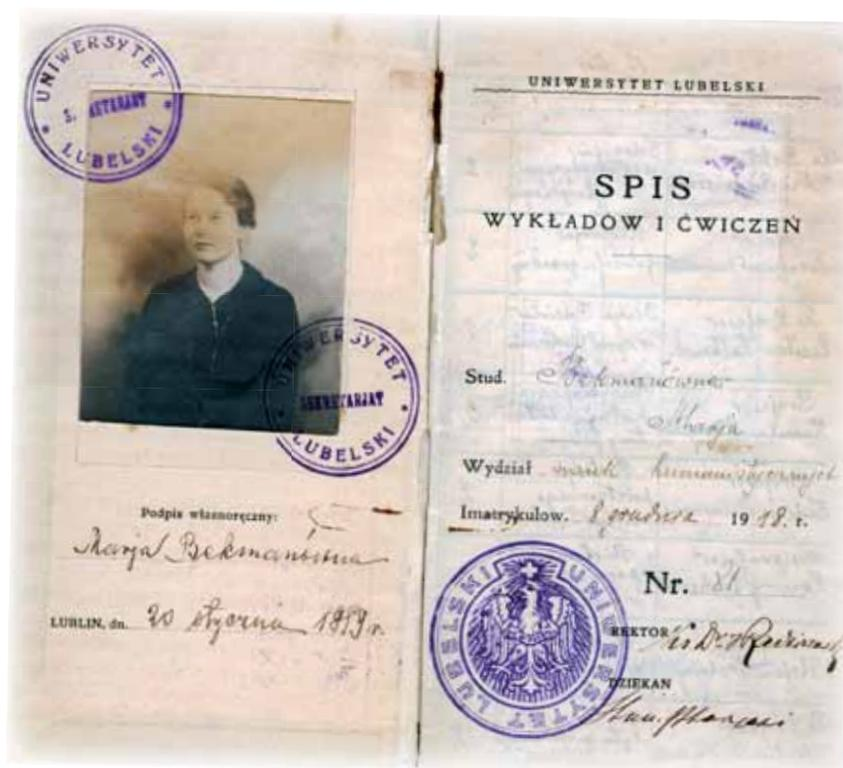 UNIWERSYTET LUBELSKI
UNIWERSYTET LUBELSKI
SEKRETARJAT
Podpis własnoręczny:
Marja Bekmanówna
LUBLIN, dn. 20 stycznia 1919 r.
UNIWERSYTET LUBELSKI
SPIS
WYKŁADÓW I ĆWICZEŃ
Stud. Bekmanówna
Marja
Wydział nauk humanistycznych
Imatrykulow. 8 grudnia 1918. r.
Nr. 81
UNIWERSYTET LUBELSKI
REKTOR Ks Dr
DZIEKAN